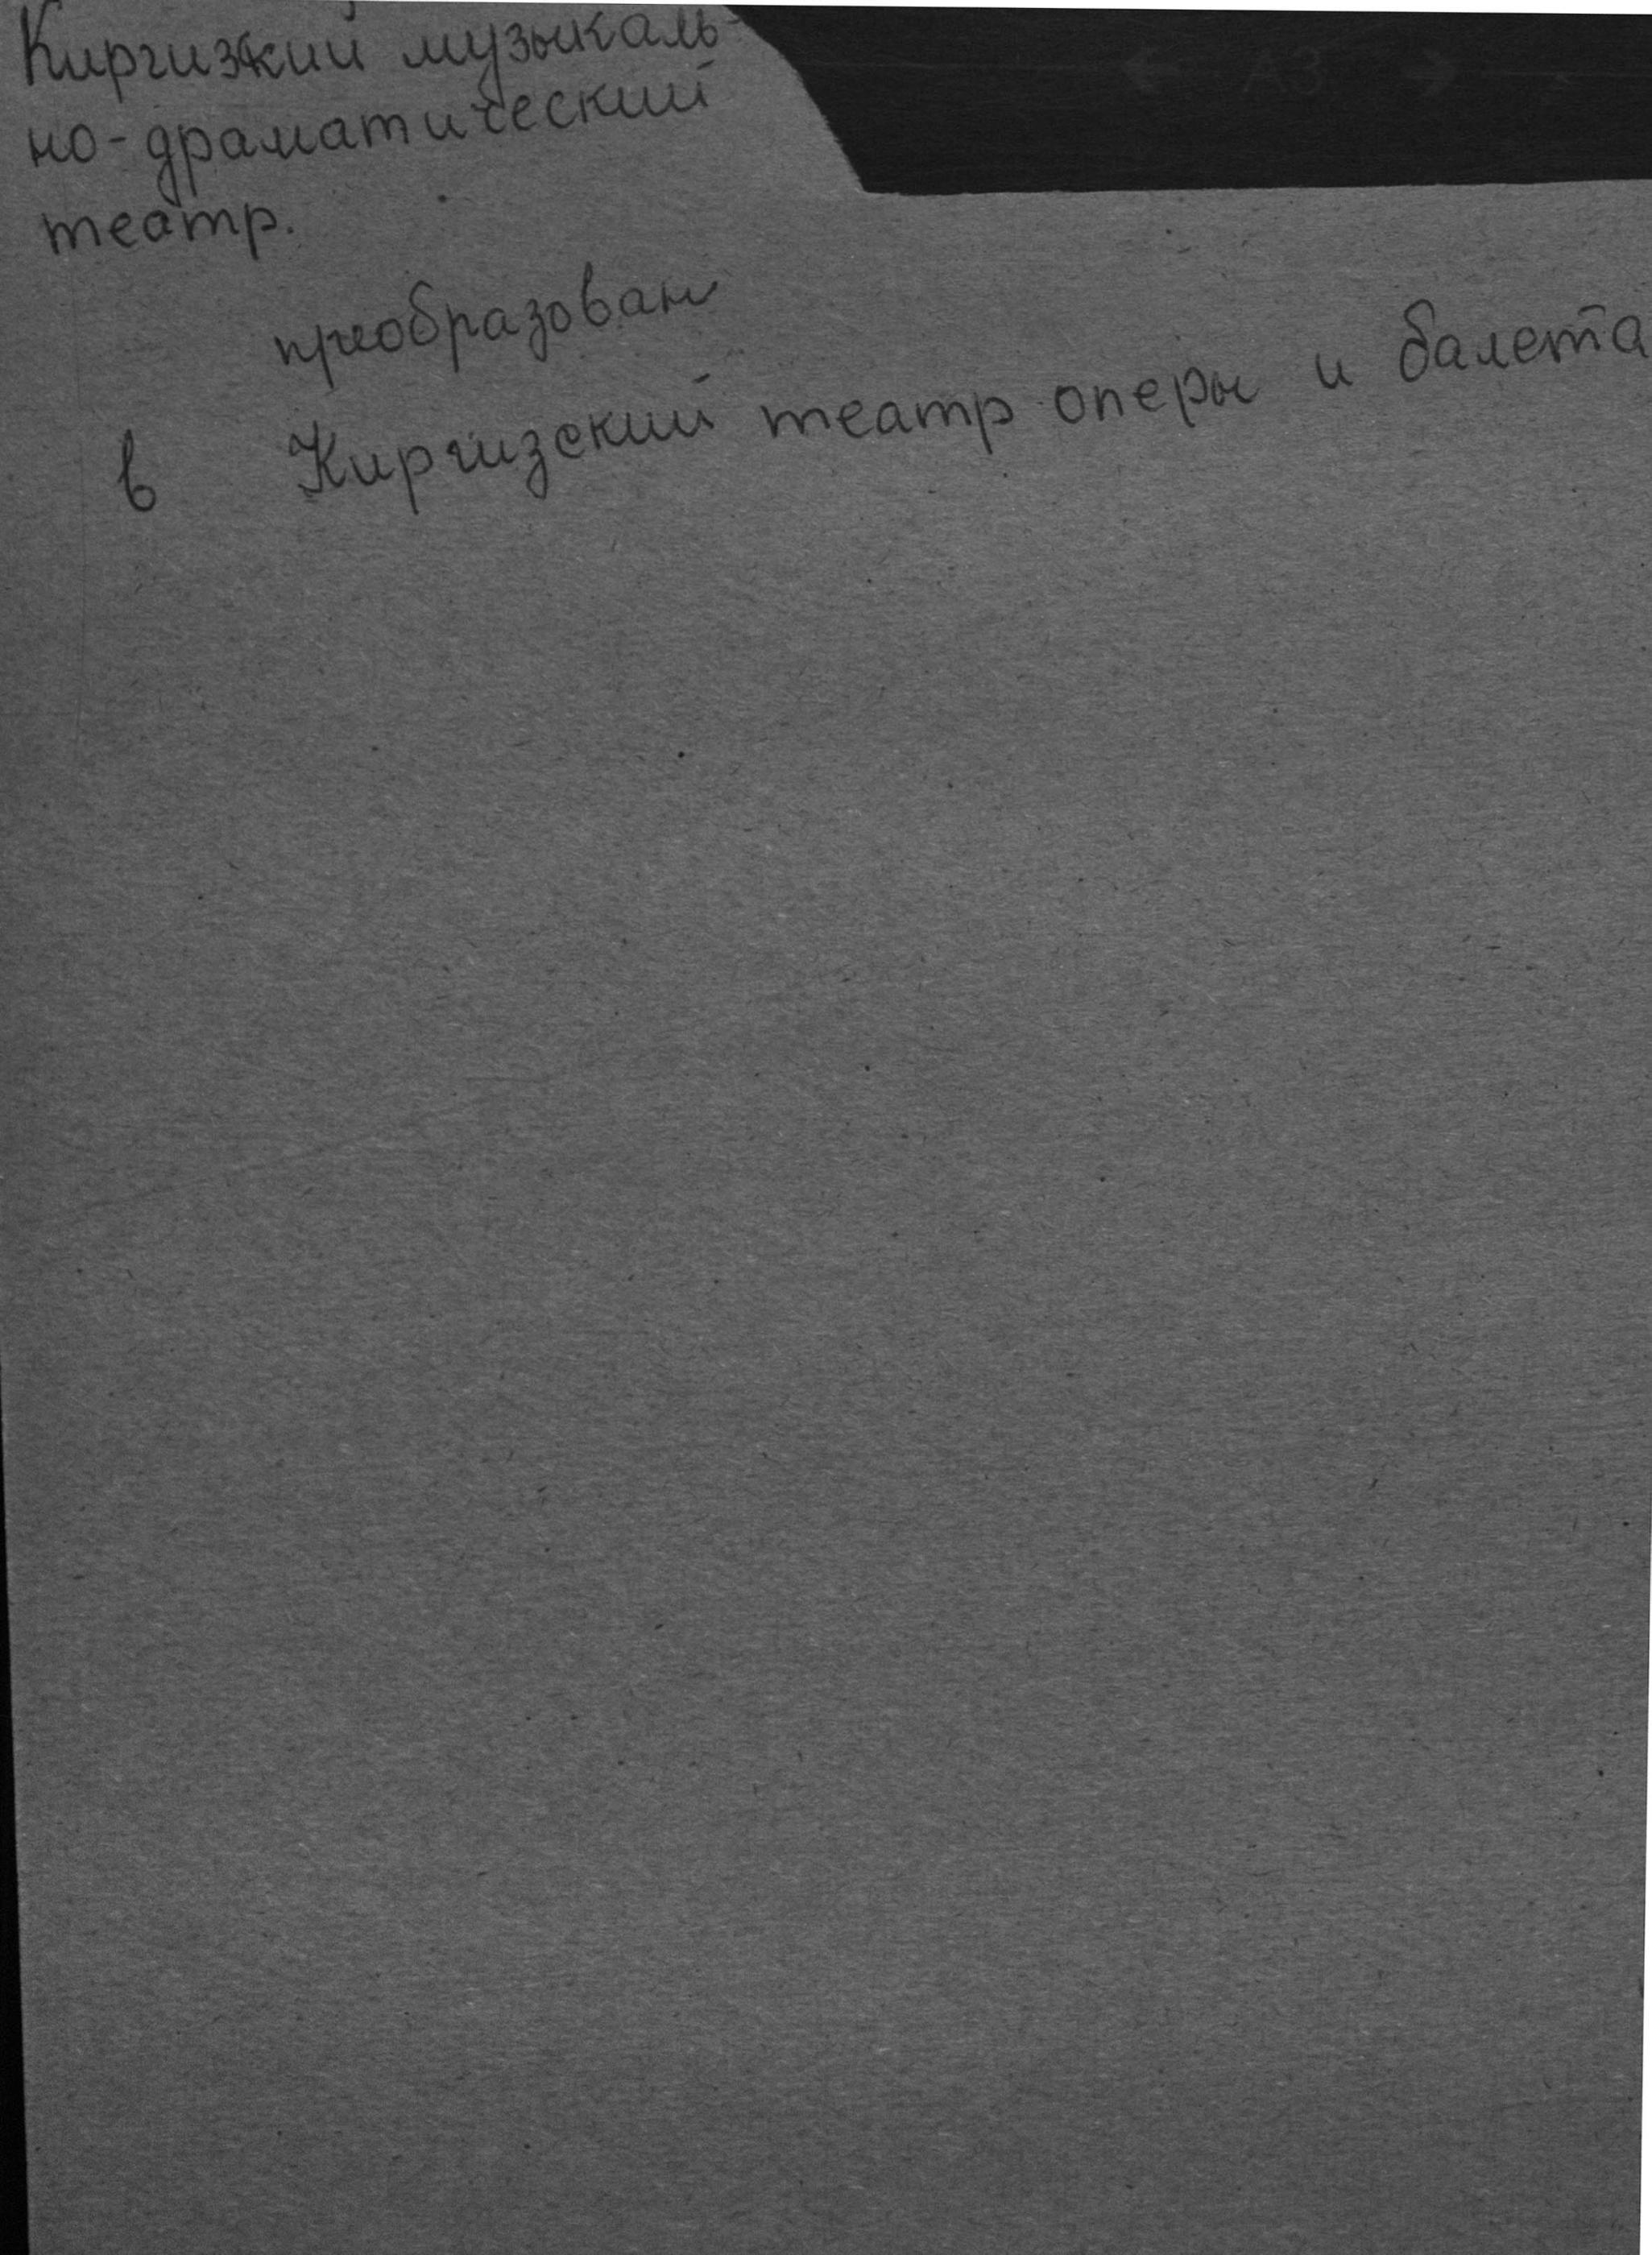 Киргизкий музыкаль-
но-драматический
театр.
преобразован
в Киргизский театр оперы и балета
← A3 →